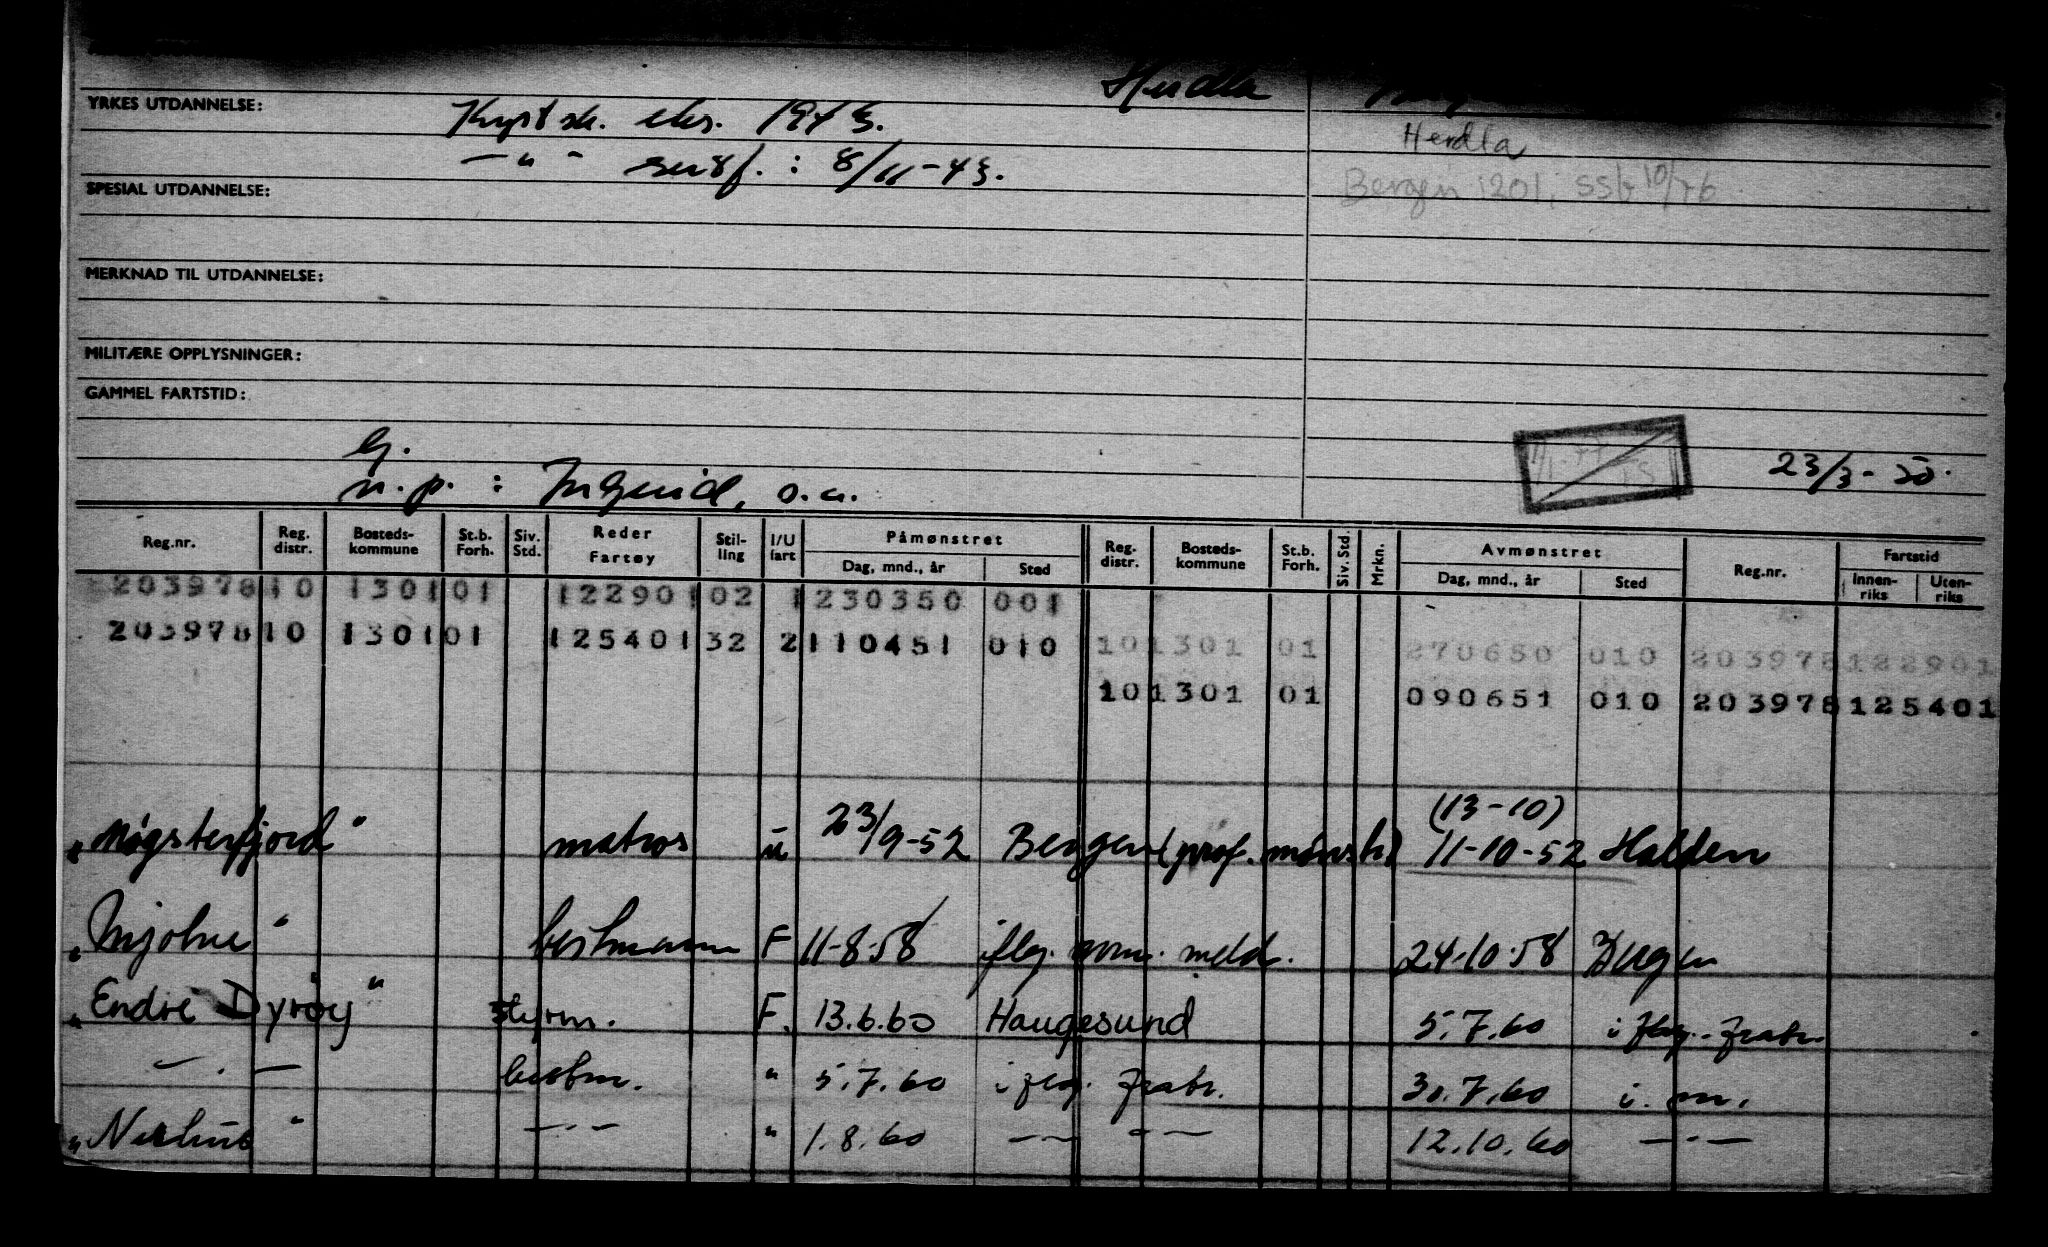 Herdla
YRKES UTDANNELSE: Kystsk. eks. 1943.
Herdla
— " - sertf. : 8/11-43.
SPESIAL UTDANNELSE: Bergen 1201, SSB 10/76
MERKNAD TIL UTDANNELSE:
MILITÆRE OPPLYSNINGER:
GAMMEL FARTSTID:
G.
n.p. : Ingerid, o.a. 23/3-50.
Reg.nr. Reg. distr. Bosteds-kommune St.b. Forh. Siv. Std. Reder Fartøy Stil-ling I/U fart Påmønstret Dag, mnd., år Sted Reg. distr. Bosteds-kommune St.b. Forh. Siv. Std. Mrkn. Avmønstret Dag, mnd., år Sted Reg.nr. Fartstid Innen-riks Uten-riks
203978 10 1301 01 122901 02 1 230350 001
203978 10 1301 01 125401 32 2 110451 010 10 1301 01 270650 010 203978 122901
10 1301 01 090651 010 203978 125401
(13-10)
"Møgsterfjord" matros u 23/9-52 Bergen (prøf. mønstr) 11-10-52 Halden
"Mjølne" bestmann F 11-8-58 iflg. møn. meld. 24-10-58 Bergen
"Endre Dyrøy" styrm. F. 13.6.60 Haugesund 5.7.60 i flg. fratr.
— . — bestm. " 5.7.60 i flg. fratr. 30.7.60 i. m.
"Neshus" — . — " 1.8.60 — — — . — 12.10.60 — . —